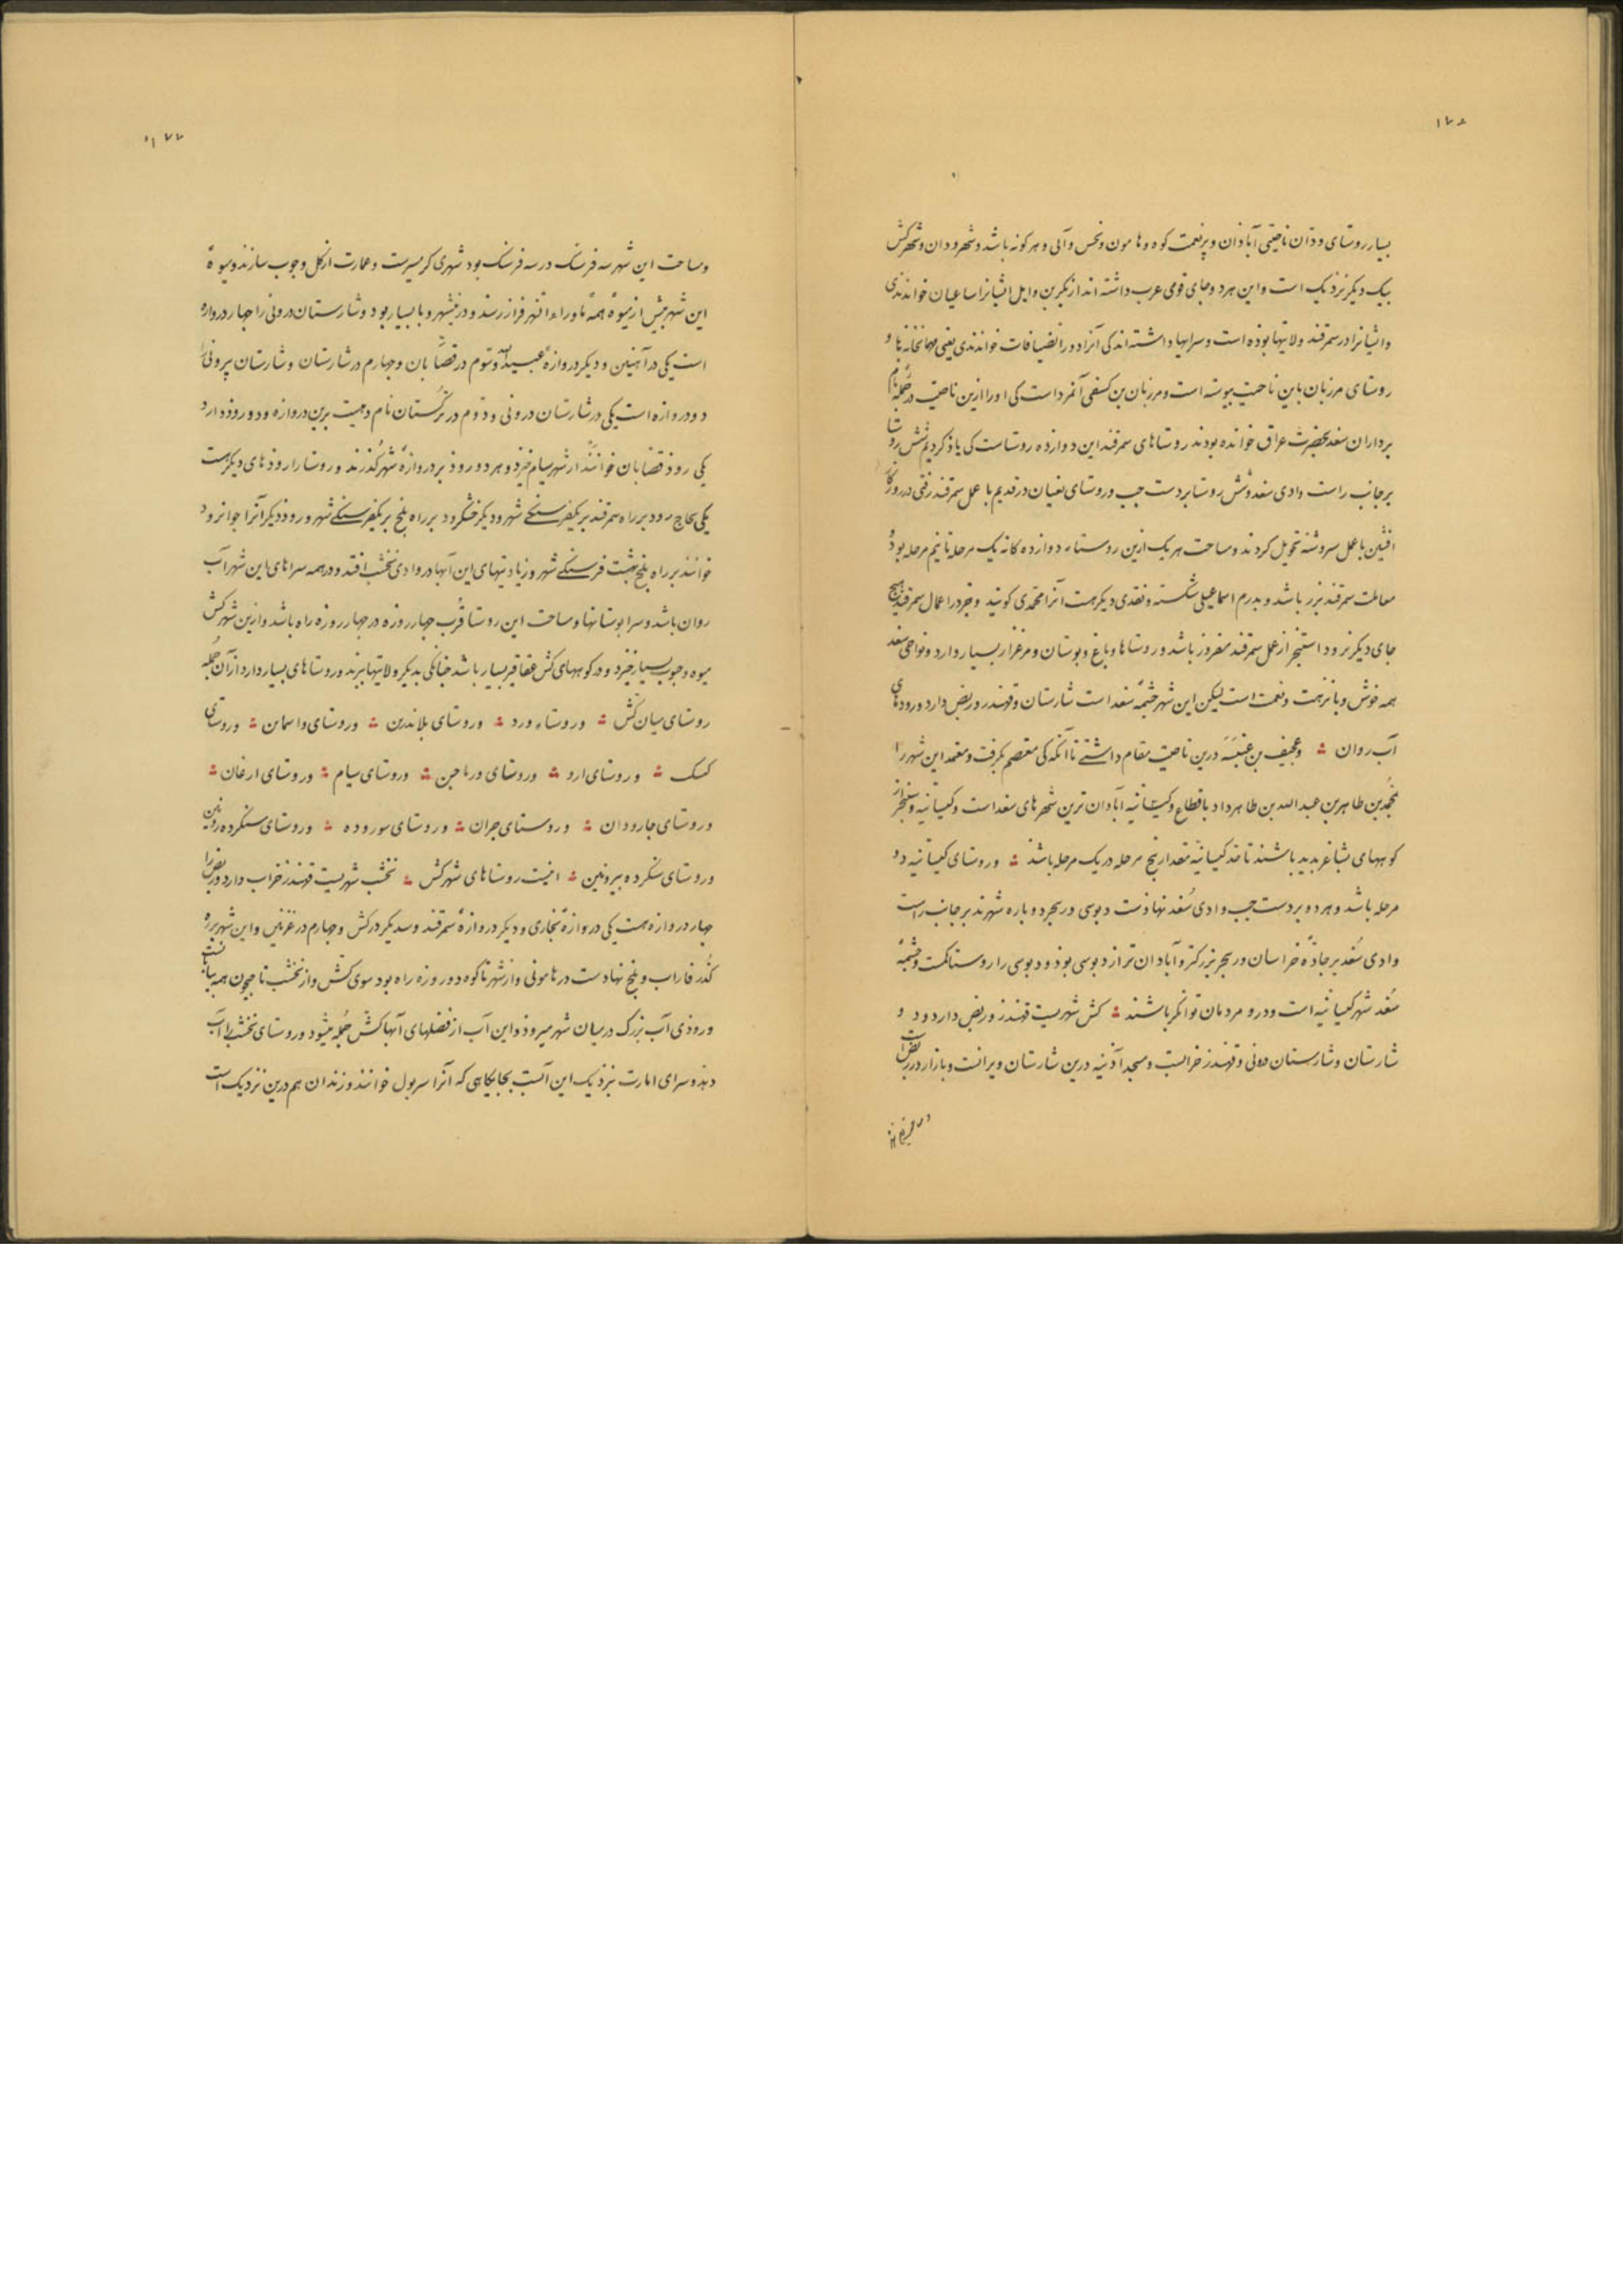 ۱۷۶
بسیار روستای ودان ناحیتی آبادان و پرنعمت کوه و هامون و نخس و آبی و هر کونه باشد و شهر ودان و شهر کش
بیک دیکر نزدیک است و این هر دو جای قومی عرب داشته اند از بکر بن وایل ایشانرا ساعیان خواندندی
و ایشانرا در سمرقند ولایتها بوده است و سرایها داشته اند کی آنرا دور الضیافات خواندندی یعنی مهمانخانها و
روستای مرزبان باین ناحیت پیوسته است و مرزبان بن کسفی آنمرد است کی او را ازین ناحیت در جمله نام
برداران سغد بحضرت عراق خوانده بودند روستاهای سمرقند این دوازده روستاست کی یاد کردیم شش روستا
بر جانب راست وادی سغد و شش روستا بر دست جپ و روستای نعیان در قدیم با عمل سمرقند رفتی در روزکار
افشین با عمل سروشنه تحویل کردند و مساحت هریک ازین روستاء دوازده کانه یک مرحله تا نیم مرحله بود و
معاملت سمرقند بزر باشد و بدرم اسماعیلی شکسته و نقدی دیکر هست آنرا محمدی کویند و جز در اعمال سمرقند بهیج
جای دیکر نرود استنجر از عمل سمرقند مفروز باشد و روستاها و باغ و بوستان و مرغزار بسیار دارد و نواحی سغد
همه خوش و با نزهت و نعمت است لیکن این شهر چشمهٔ سغد است شارستان و قهندز و ربض دارد و رودهای
آب روان ∴ و عجیف بن عنبسه درین ناحیت مقام داشتی تا آنکه کی معتصم بکرفت و معتمد این شهر را
بمحمد بن طاهر بن عبد الله بن طاهر داد باقطاع و کیشانیه آبادان ترین شهرهای سغد است و کیشانیه و سنجر از
کوههای بشاغر پدید باشند تا حد کیسانیه مقدار پنج مرحله در یک مرحله باشد ∴ و روستای کیسانیه دو
مرحله باشد و هر دو بر دست جپ وادی سُغد نهادست دبوسی و ربنجر دو پاره شهرند بر جانب راست
وادی سُغد بر جادهٔ خراسان و ربنجر بزرکتر و آبادان تر از دبوسی بود و دبوسی را روستا کمست و چشمهٔ
سُغد شهر کیسانیه است و درو مردمان توانکر باشند ∴ کش شهریست قهندز و ربض دارد و دو
شارستان و شارستان درونی و قهندز خرابست و مسجد آذینه درین شارستان ویرانست و بازار در ربض است
۱۷۷
و مساحت این شهر سه فرسنک در سه فرسنک بود شهری کرمسیرست و عمارت از کل و جوب سازند و میوهٔ
این شهر پیش از میوهٔ همهٔ ماوراء النهر فراز رسد و درین شهر وبا بسیار بود و شارستان درونی را جهار دروازه
است یکی در آهنین و دیکر دروازهٔ عبید الله و سوم در قصابان و جهارم در شارستان و شارستان بیرونی را
دو دروازه است یکی در شارستان درونی و دوم در ترکستان نام دهیست برین دروازه و دو رود دارد
یکی رود قصابان خوانند از شهر سیام خیزد و هر دو رود بر دروازهٔ شهر کذرند و روستا را رودهای دیکرست
یکی بجاج رود بر راه سمرقند بر یکفرسنکی شهر و دیکر خشکرود بر راه بلخ بر یکفرسنکی شهر و رود دیکر آنرا جوانرود
خوانند بر راه بلخ هشت فرسنکی شهر و زیادتهای این آبها در وادی نخشب افتد و در همه سراهای این شهر آب
روان باشد و سرا بوستانها و مساحت این روستا قُرب جهار روزه در جهار روزه راه باشد و ازین شهر کش
میوه و جوب بسیار خیزد و در کوههای کش عقاقیر بسیار باشد جنانکی بدیکر ولایتها برند و روستاهای بسیار دارد از آن جمله
روستای میان کش ∴ و روستاء ورد ∴ و روستای بلاندرین ∴ و روستای واسماین ∴ و روستای
کسک ∴ و روستای ارو ∴ و روستای ورماجن ∴ و روستای سیام ∴ و روستای ارغان ∴
و روستای جارودان ∴ و روستای جران ∴ و روستای سوروده ∴ و روستای سنکرده درونین
و روستای سنکرده بیرونین ∴ اینست روستاهای شهر کش ∴ نخشب شهریست قهندز خراب دارد و ربض را
جهار دروازه هست یکی دروازهٔ بخاری و دیکر دروازهٔ سمرقند و سدیکر در کش و جهارم در غزنین و این شهر بر ره
کذر فاراب و بلخ نهادست در هامونی و از شهر تا کوه دو روزه راه بود سوی کش و از نخشب تا جیحون همه بیابانست
و رودی آب بزرک در میان شهر میرود و این آب از فضلهای آبها کش جُمله میشود و روستای نخشب را آب
دهد و سرای امارت بنزدیک این آبست بجایکاهی که آنرا سر پول خوانند و زندان هم درین نزدیک است